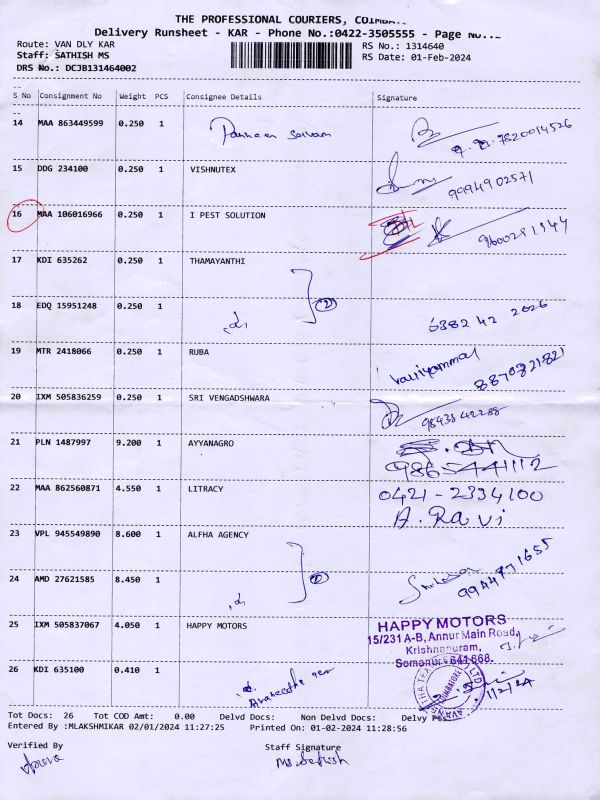 THE PROFESSIONAL COURIERS,
Delivery Runsheet - KAR - Phone No.:0422-3505555 - Page
Route: VAN DLY KAR
RS No.: 1314640
Staff: SATHISH MS
RS Date: 01-Feb-2024
DRS No.: DCJB131464002
S No Consignment No Weight PCS Consignee Details Signature
14 MAA 863449599 0.250 1
7820014526
15 DDG 234100 0.250 1 VISHNUTEX
9994902571
16 MAA 106016966 0.250 1 I PEST SOLUTION
17 KDI 635262 0.250 1 THAMAYANTHI
18 EDQ 15951248 0.250 1
2
6382 42 2026
19 MTR 2418066 0.250 1 RUBA
8870821821
20 IXM 505836259 0.250 1 SRI VENGADSHWARA
9843842288
21 PLN 1487997 9.200 1 AYYANAGRO
22 MAA 862560871 4.550 1 LITRACY
0421-2334100
A. Ravi
23 VPL 945549890 8.600 1 ALFHA AGENCY
24 AMD 27621585 8.450 1
25 IXM 505837067 4.050 1 HAPPY MOTORS
HAPPY MOTORS
15/231 A-B, Annur Main Road,
Krishnapuram,
Somanur - 641 668.
26 KDI 635100 0.410 1
1/2/24
Tot Docs: 26 Tot COD Amt: 0.00 Delvd Docs: Non Delvd Docs: Delvy
Entered By :MLAKSHMIKAR 02/01/2024 11:27:25 Printed On: 01-02-2024 11:28:56
Verified By Staff Signature
Ms. Sathish